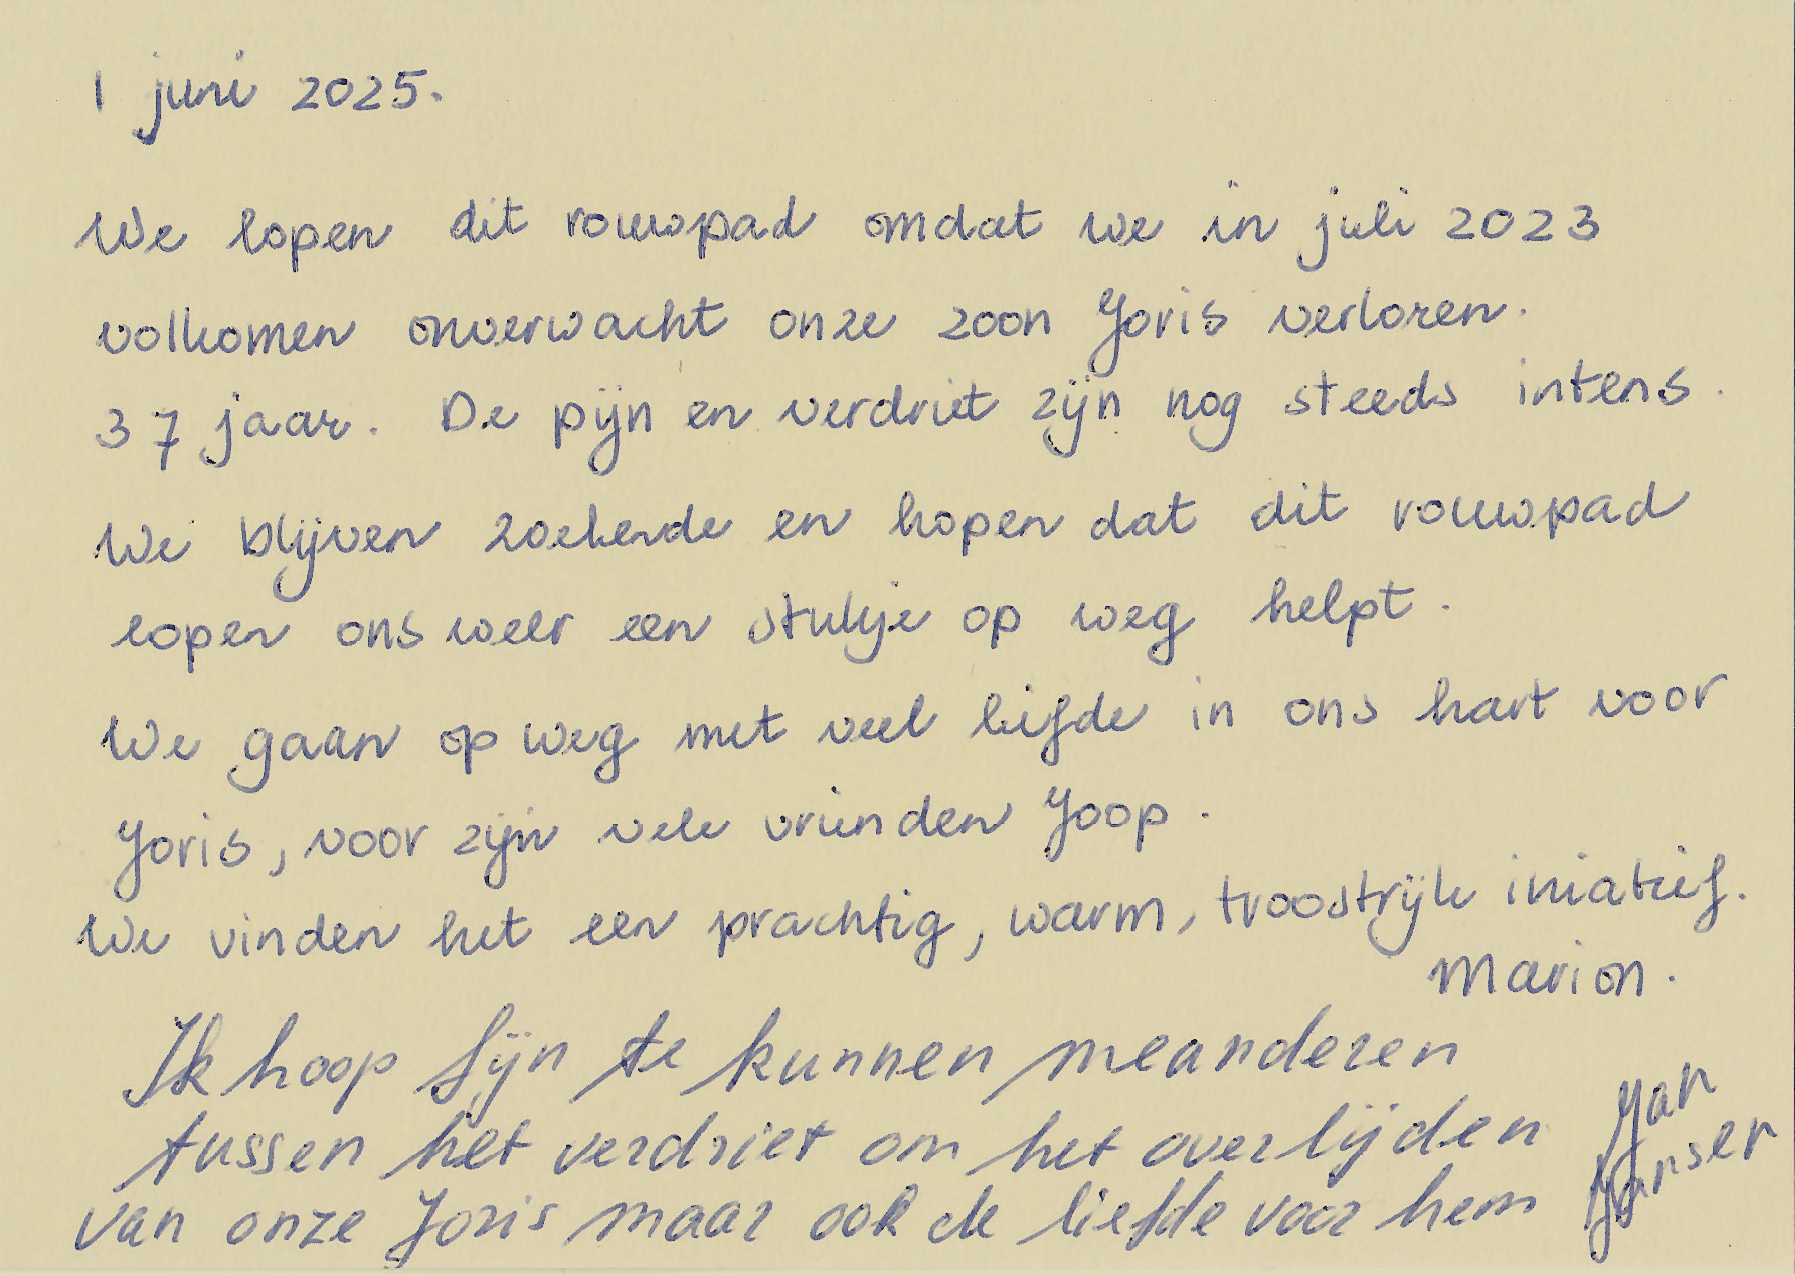 1 juni 2025.
We lopen dit rouwpad omdat we in juli 2023
volkomen onverwacht onze zoon Joris verloren.
37 jaar. De pijn en verdriet zijn nog steeds intens.
We blijven zoekende en hopen dat dit rouwpad
lopen ons weer een stukje op weg helpt.
We gaan op weg met veel liefde in ons hart voor
Joris, voor zijn vele vrienden Joop.
We vinden het een prachtig, warm, troostrijk iniatief.
Marion.
Ik hoop fijn te kunnen meanderen
tussen het verdriet om het overlijden
van onze Joris maar ook de liefde voor hem
Jan